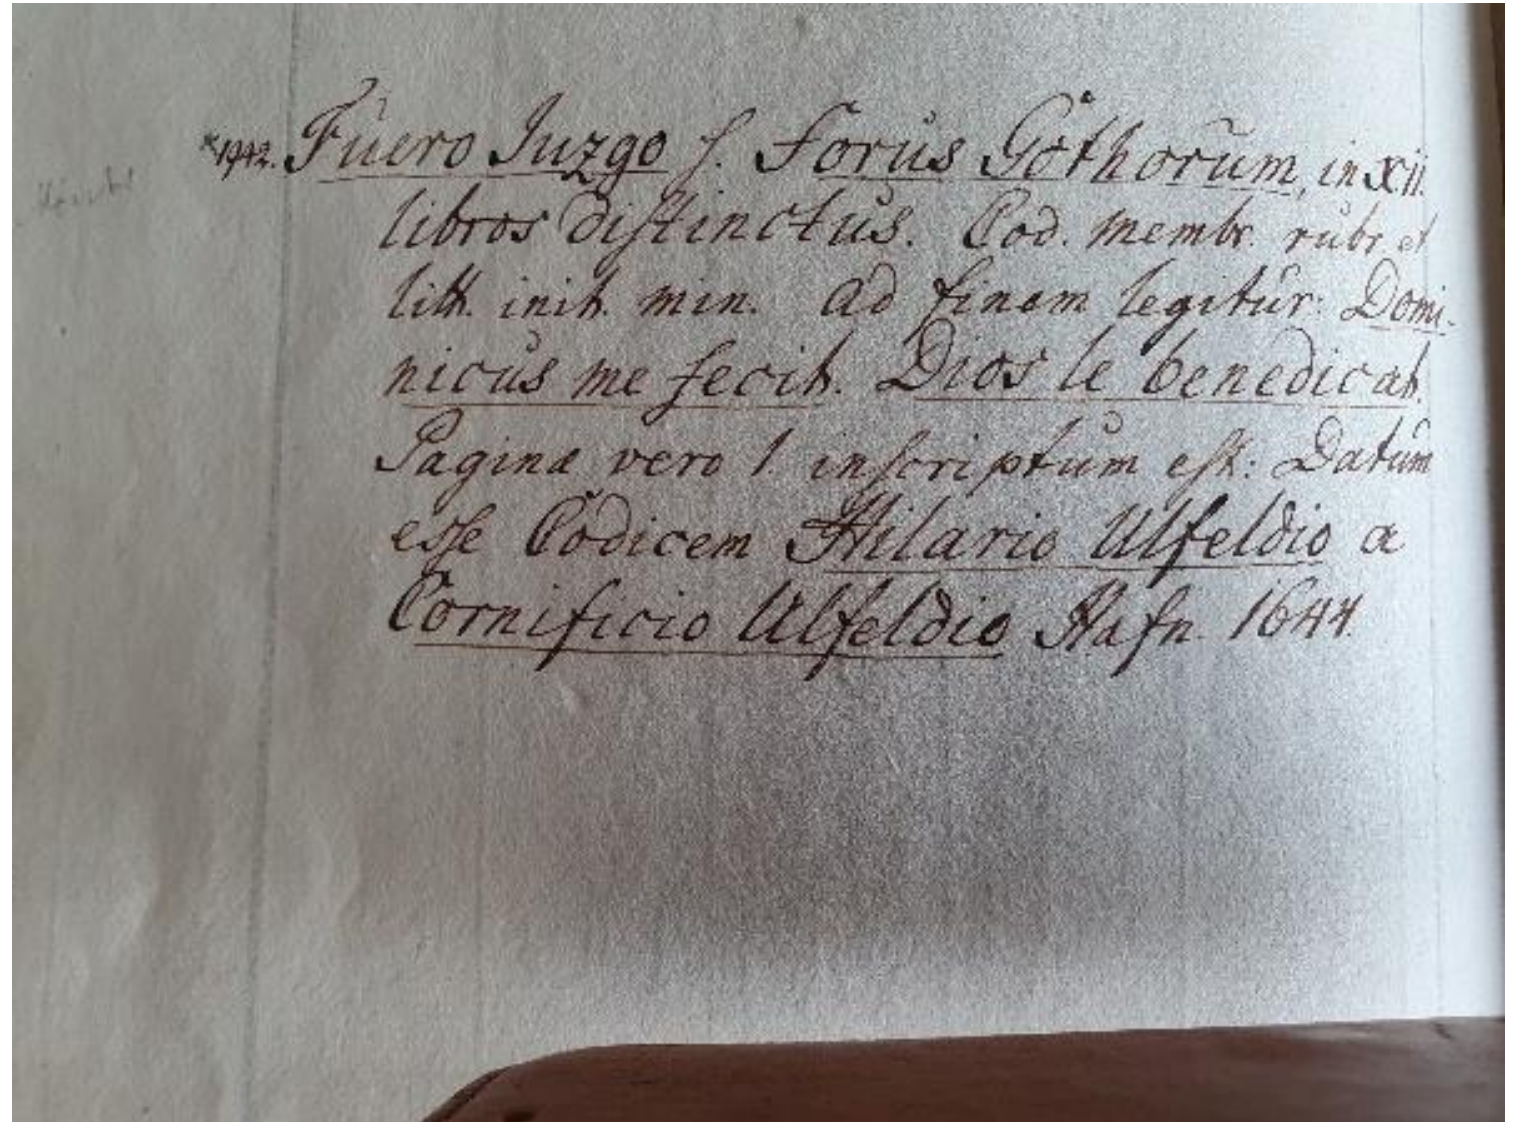 *1942. Fuero Juzgo s. Forus Gothorum, in XII.
libros distinctus. Cod. membr. rubr. et
litt. init. min. Ad finem legitur: Domi-
nicus me fecit. Dios le benedicat.
Paginæ vero 1 inscriptum est: Datum
esse Codicem Hilario Ulfeldio a
Cornificio Ulfeldio Hafn. 1644.